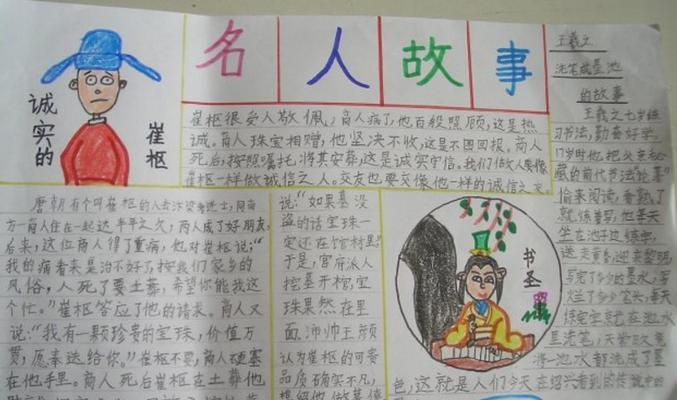 名人故事
诚实的
崔枢
崔枢很受人敬佩，商人病了，他百般照顾，这是热
诚。商人珠宝相赠，他坚决不收，这是不图回报。商人
死后，按照嘱托，将其安葬，这是诚实守信。我们做人要像
崔枢一样做诚信之人。交友也要交像他一样的诚信之友
唐朝有个叫崔枢的人去汴梁考进士，同南
方一商人住在一起达半年之久，两人成了好朋友，
后来，这位商人得了重病，他对崔枢说：“
我的病看来是治不好了，按我们家乡的
风俗，人死了要土葬，希望你能我这
个忙。”崔枢答应了他的请求。商人又
说：“我有一颗珍贵的宝珠，价值万
贯，愿奉送给你。”崔枢不要，商人硬塞
在他手里。商人死后崔枢在土葬他
说：“如果墓没
盗的话宝珠一
定还在棺材里”
于是，官府派人
挖墓开棺宝
珠果然在里
面。沛帅王颜
认为崔枢的可贵
品质确实不凡，
书圣
王羲之
洗笔成墨池
的故事
王羲之七岁练
习书法，勤奋好学。
17岁时他把父亲秘
藏的前代书法论著
偷来阅读，看熟了
就练着写，他每天
坐在池子边练字，
送走黄昏，迎来黎明，
写完了多少的墨水，写
烂了多少笔头，每天
练完字就在池水
里洗笔，天长日久竟
将一池水都洗成了墨
色，这就是人们今天在绍兴看到的传说中的